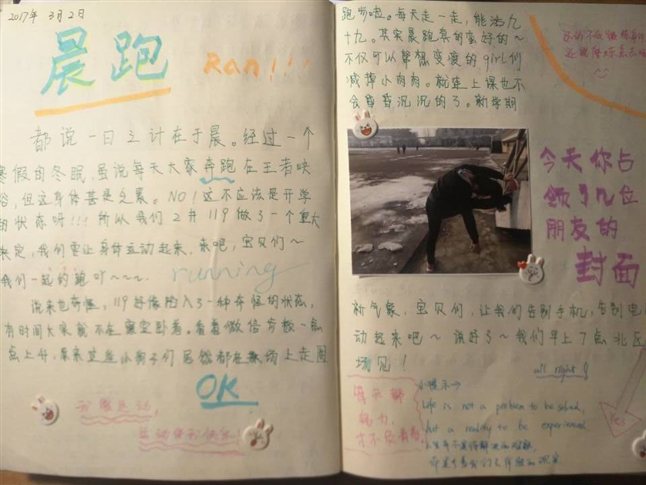 2017年 3月2日
晨跑
Ran!!!
都说一日之计在于晨。经过一个
寒假的冬眠,虽说每天大家奔跑在王者峡
谷,但这身体甚是乏累。NO!这不应该是开学
的状态呀!!!所以我们2井119做了一个重大
决定,我们要让身体运动起来,来吧,宝贝们~
我们一起晨跑吖~~~
running
说来也奇怪,119好像陷入了一种奇怪的状态,
有时间大家就不在寝室卧着。看着微信步数一点
点上升,原来这些小妮子们居然都在操场上走圈
OK
我爱运动
运动使我快乐
跑步啦。每天走一走,能活九
十九。其实晨跑真的蛮好的~
不仅可以帮想变瘦的girl们
减掉小肉肉。就连上课也不
会昏昏沉沉的了。新学期
今天你占
领了几位
朋友的
封面
新气象,宝贝们,让我们告别手机,告别电
动起来吧~ 说好了~ 我们早上7点,北区
场见!
all right!
每天都
努力,
才不会有
小提示→
Life is not a problem to be solved,
but a reality to be experienced
Yes